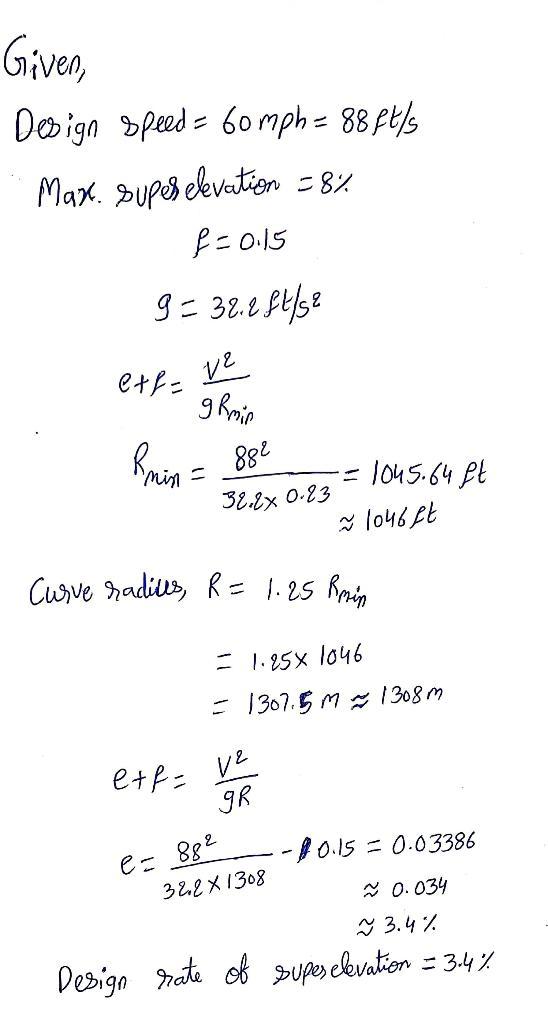 Given,
Design speed = 60 mph = 88 ft/s
Max. superelevation = 8%
f = 0.15
g = 32.2 ft/s²
e+f = V²/gRmin
Rmin = 88²/32.2×0.23 = 1045.64 ft
≈ 1046 ft
Curve radius, R = 1.25 Rmin
= 1.25×1046
= 1307.5 m ≈ 1308 m
e+f = V²/gR
e = 88²/32.2×1308 - 0.15 = 0.03386
≈ 0.034
≈ 3.4%
Design rate of superelevation = 3.4%